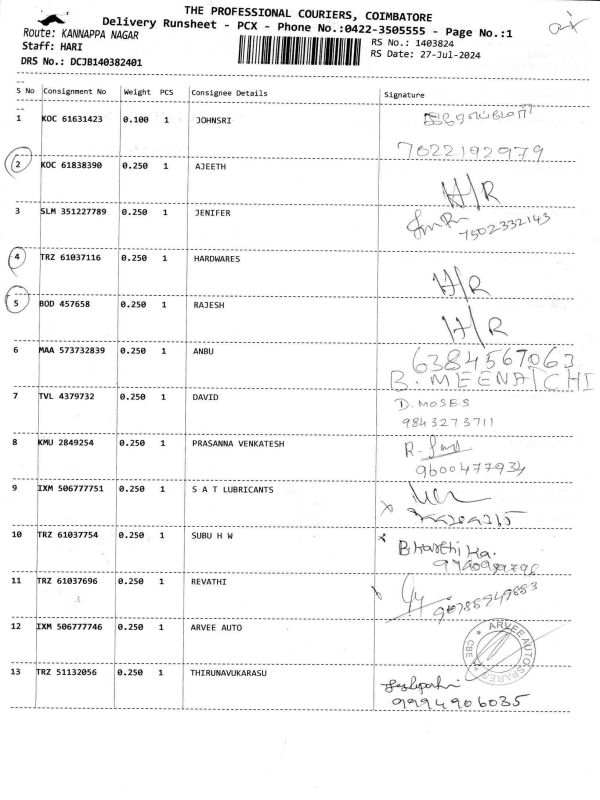 THE PROFESSIONAL COURIERS, COIMBATORE
Delivery Runsheet - PCX - Phone No.:0422-3505555 - Page No.:1
Route: KANNAPPA NAGAR
Staff: HARI
DRS No.: DCJB140382401
RS No.: 1403824
RS Date: 27-Jul-2024
S No Consignment No Weight PCS Consignee Details Signature
1 KOC 61631423 0.100 1 JOHNSRI
7022192979
2 KOC 61838390 0.250 1 AJEETH H/R
3 SLM 351227789 0.250 1 JENIFER 7502332143
4 TRZ 61037116 0.250 1 HARDWARES H/R
5 BOD 457658 0.250 1 RAJESH H/R
6 MAA 573732839 0.250 1 ANBU 6384567063
B. MEENATCHI
7 TVL 4379732 0.250 1 DAVID D. MOSES
9843273711
8 KMU 2849254 0.250 1 PRASANNA VENKATESH
9600477934
9 IXM 506777751 0.250 1 S A T LUBRICANTS
10 TRZ 61037754 0.250 1 SUBU H W Bharthi Ka.
11 TRZ 61037696 0.250 1 REVATHI
12 IXM 506777746 0.250 1 ARVEE AUTO ARVEE AUTO SPARES CBE
13 TRZ 51132056 0.250 1 THIRUNAVUKARASU
9994906035